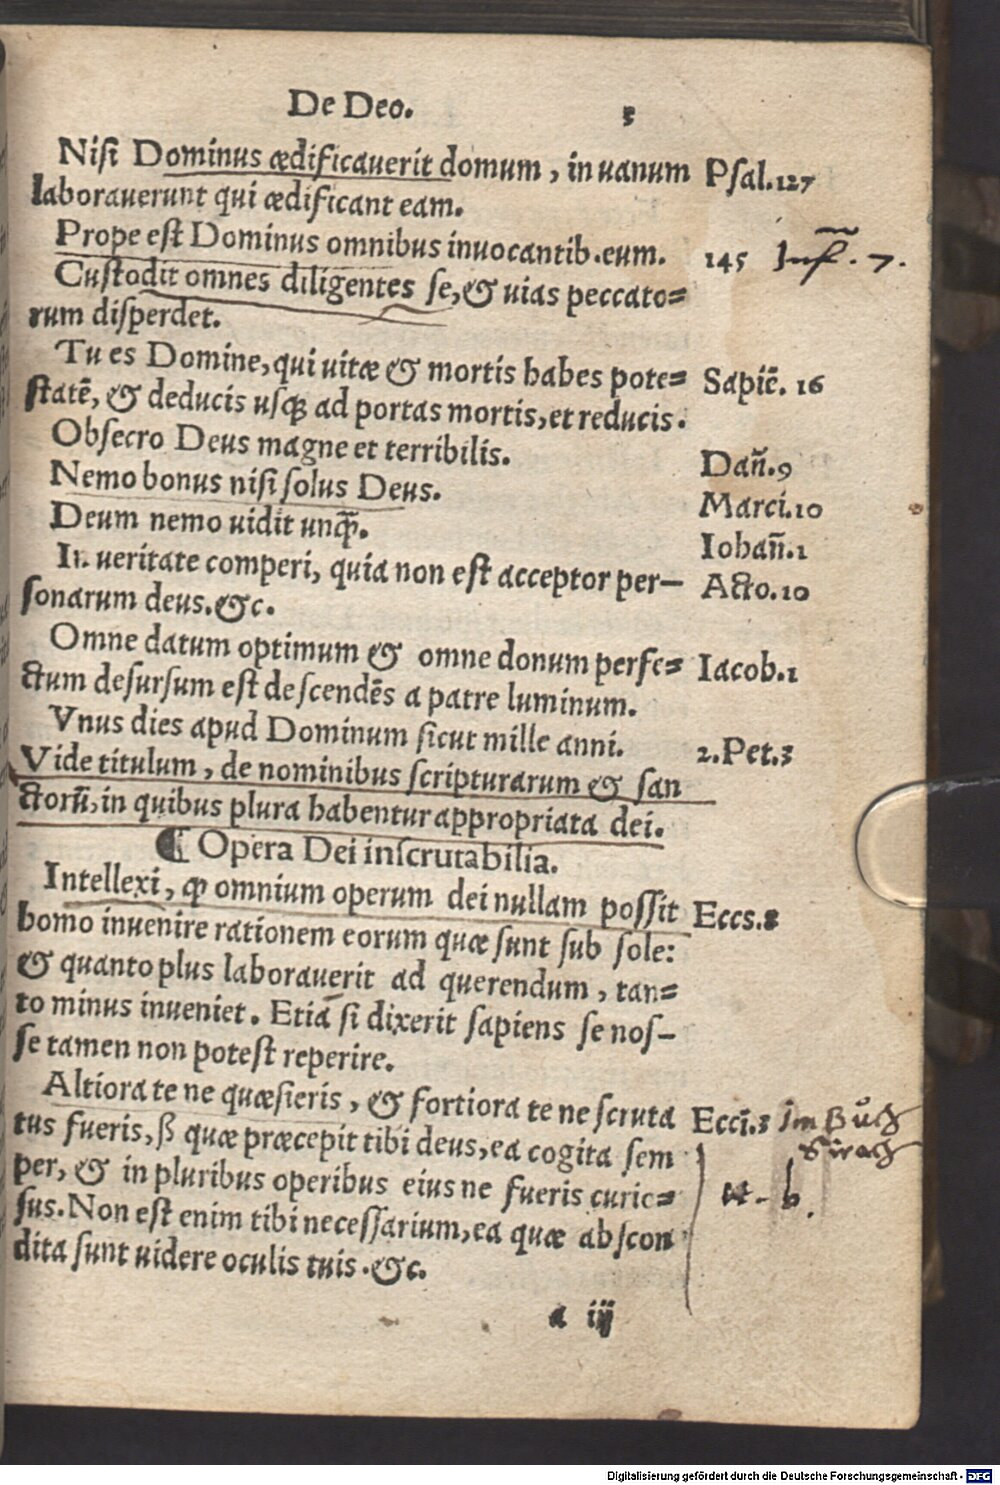 De Deo. 3
Nisi Dominus ædificauerit domum, in uanum Psal.127
laborauerunt qui ædificant eam.
Prope est Dominus omnibus inuocantib.eum. 145 Inf. 7.
Custodit omnes diligentes se,& uias peccato=
rum disperdet.
Tu es Domine,qui uitæ & mortis habes pote= Sapiẽ. 16
statẽ, & deducis usq; ad portas mortis,et reducis.
Obsecro Deus magne et terribilis. Dañ.9
Nemo bonus nisi solus Deus. Marci.10
Deum nemo uidit unq̃. Iohañ.1
In ueritate comperi, quia non est acceptor per- Acto.10
sonarum deus.&c.
Omne datum optimum & omne donum perfe= Iacob.1
ctum desursum est descendẽs a patre luminum.
Vnus dies apud Dominum sicut mille anni. 2.Pet.3
Vide titulum, de nominibus scripturarum & san
ctorũ,in quibus plura habentur appropriata dei.
¶ Opera Dei inscrutabilia.
Intellexi, ꝙ omnium operum dei nullam possit Eccs.8
homo inuenire rationem eorum quæ sunt sub sole:
& quanto plus laborauerit ad querendum, tan=
to minus inueniet. Etiã si dixerit sapiens se nos-
se tamen non potest reperire.
Altiora te ne quæsieris, & fortiora te ne scruta Eccĩ.3 im Bůch
tus fueris, ß quæ præcepit tibi deus,ea cogita sem Sirach
per, & in pluribus operibus eius ne fueris curio= b.
sus.Non est enim tibi necessarium,ea quæ abscon
dita sunt uidere oculis tuis.&c.
a iij
Digitalisierung gefördert durch die Deutsche Forschungsgemeinschaft - DFG